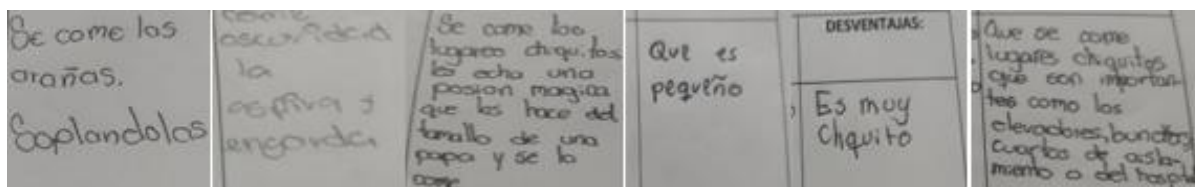 Se come las
arañas.
Soplandolas
come
oscuridad
la
aspira y
engorda
Se come los
lugares chiquitos
les echa una
posion magica
que los hace del
tamallo de una
papa y se lo
come
Que es
pequeño
DESVENTAJAS:
Es muy
Chquito
Que se come
lugares chiquitos
que son importan-
tes como los
elevadores,
cuartos de aisla-
miento o del hospital